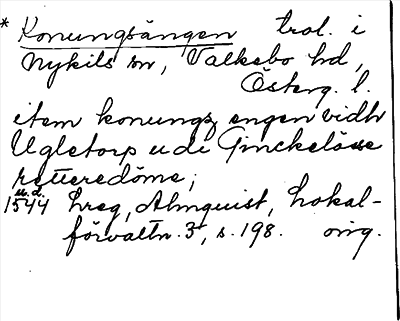 * Konungsängen trol. i
Nykils sn, Valkebo hd,
Österg. l.
item konungz engen vidh
Ugletorp udi Ginckelösse
retteredöme;
u.d.
1544 hreg, Almquist, Lokal-
förvaltn. 3, s. 198. orig.